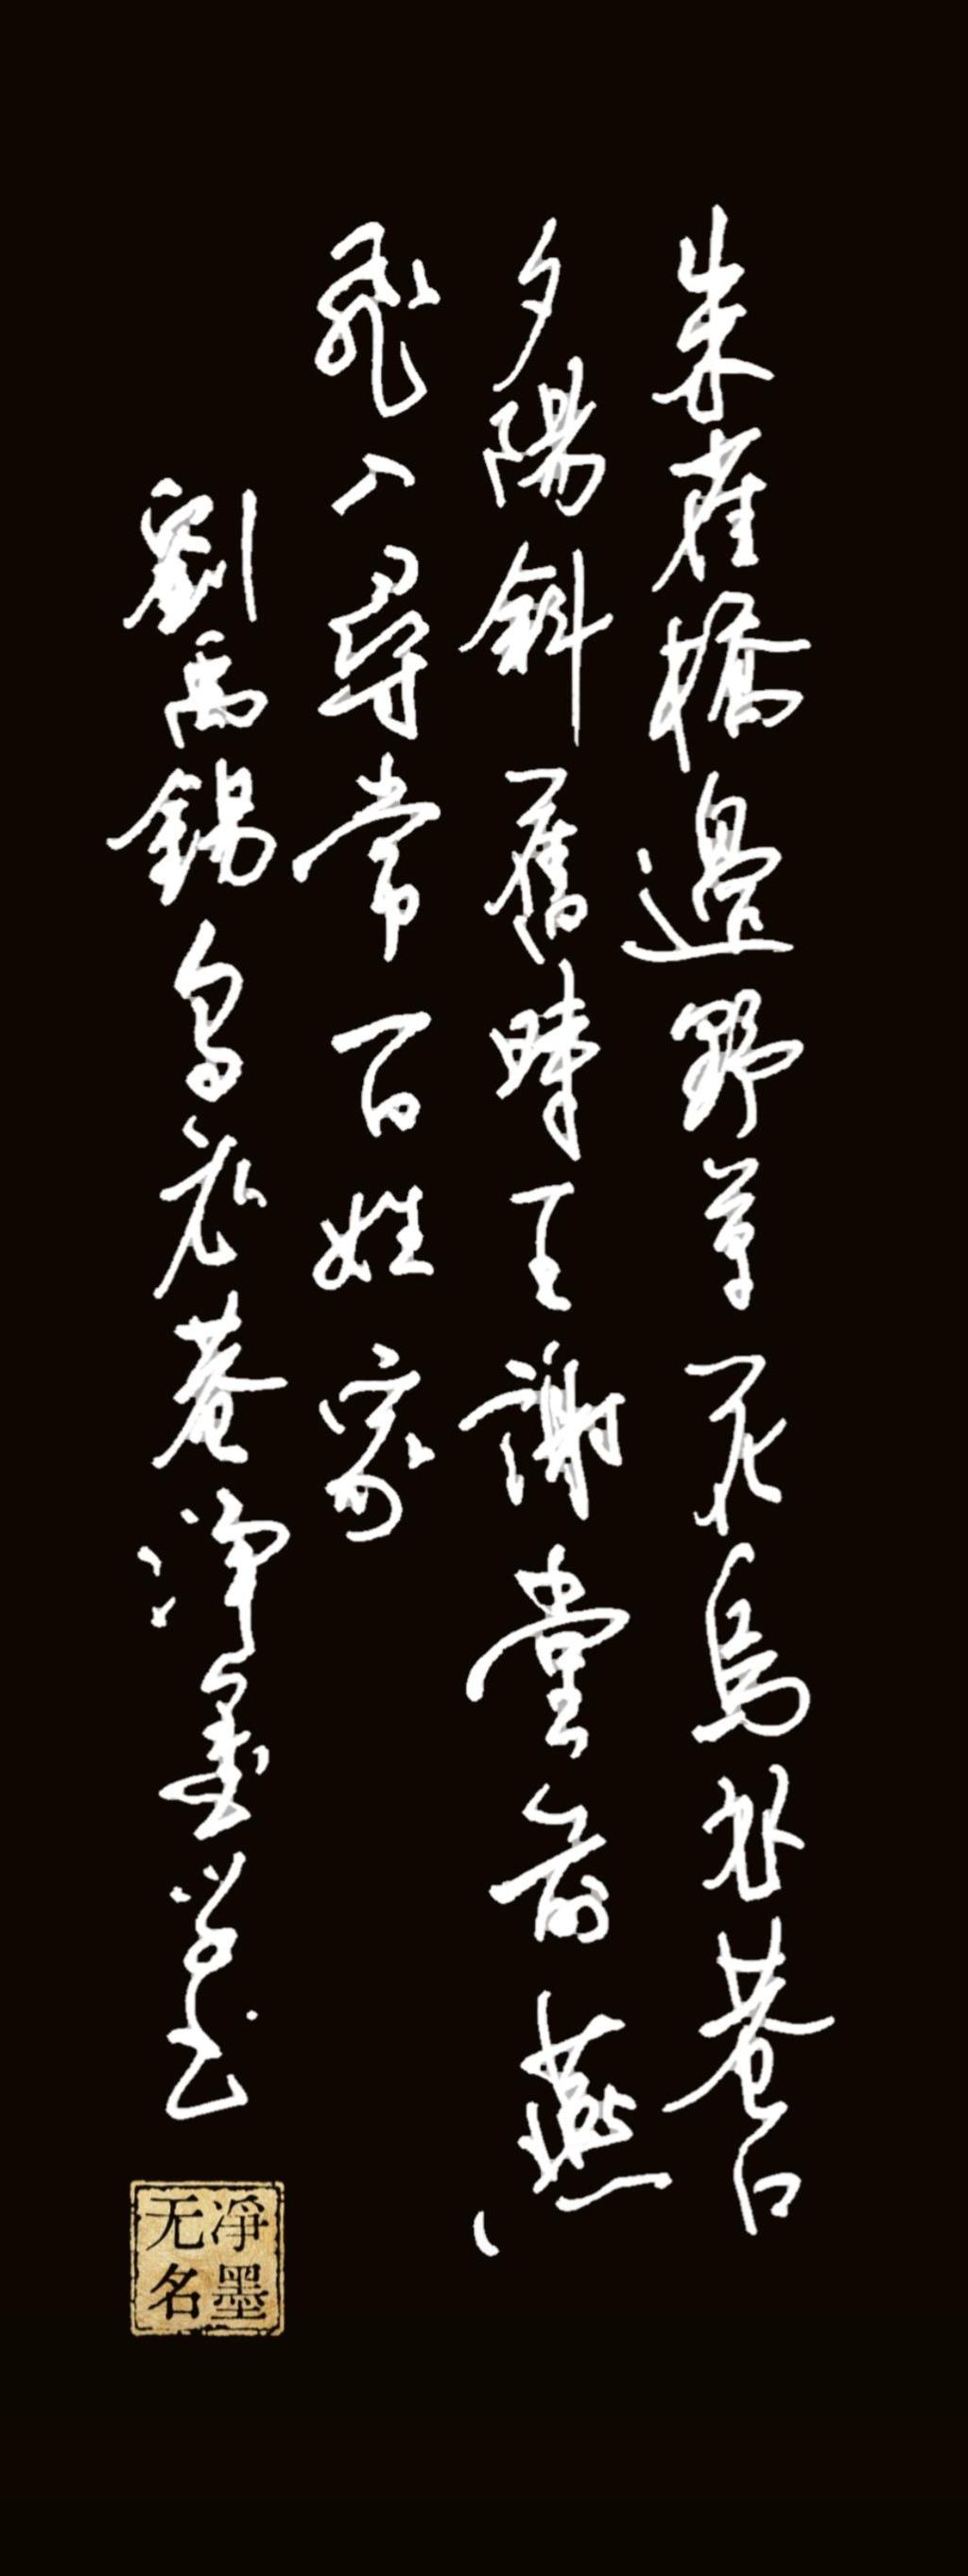 朱雀橋邊野草花烏衣巷口
夕陽斜舊時王謝堂前燕
飛入尋常百姓家
劉禹錫烏衣巷凈墨學書
凈墨
无名